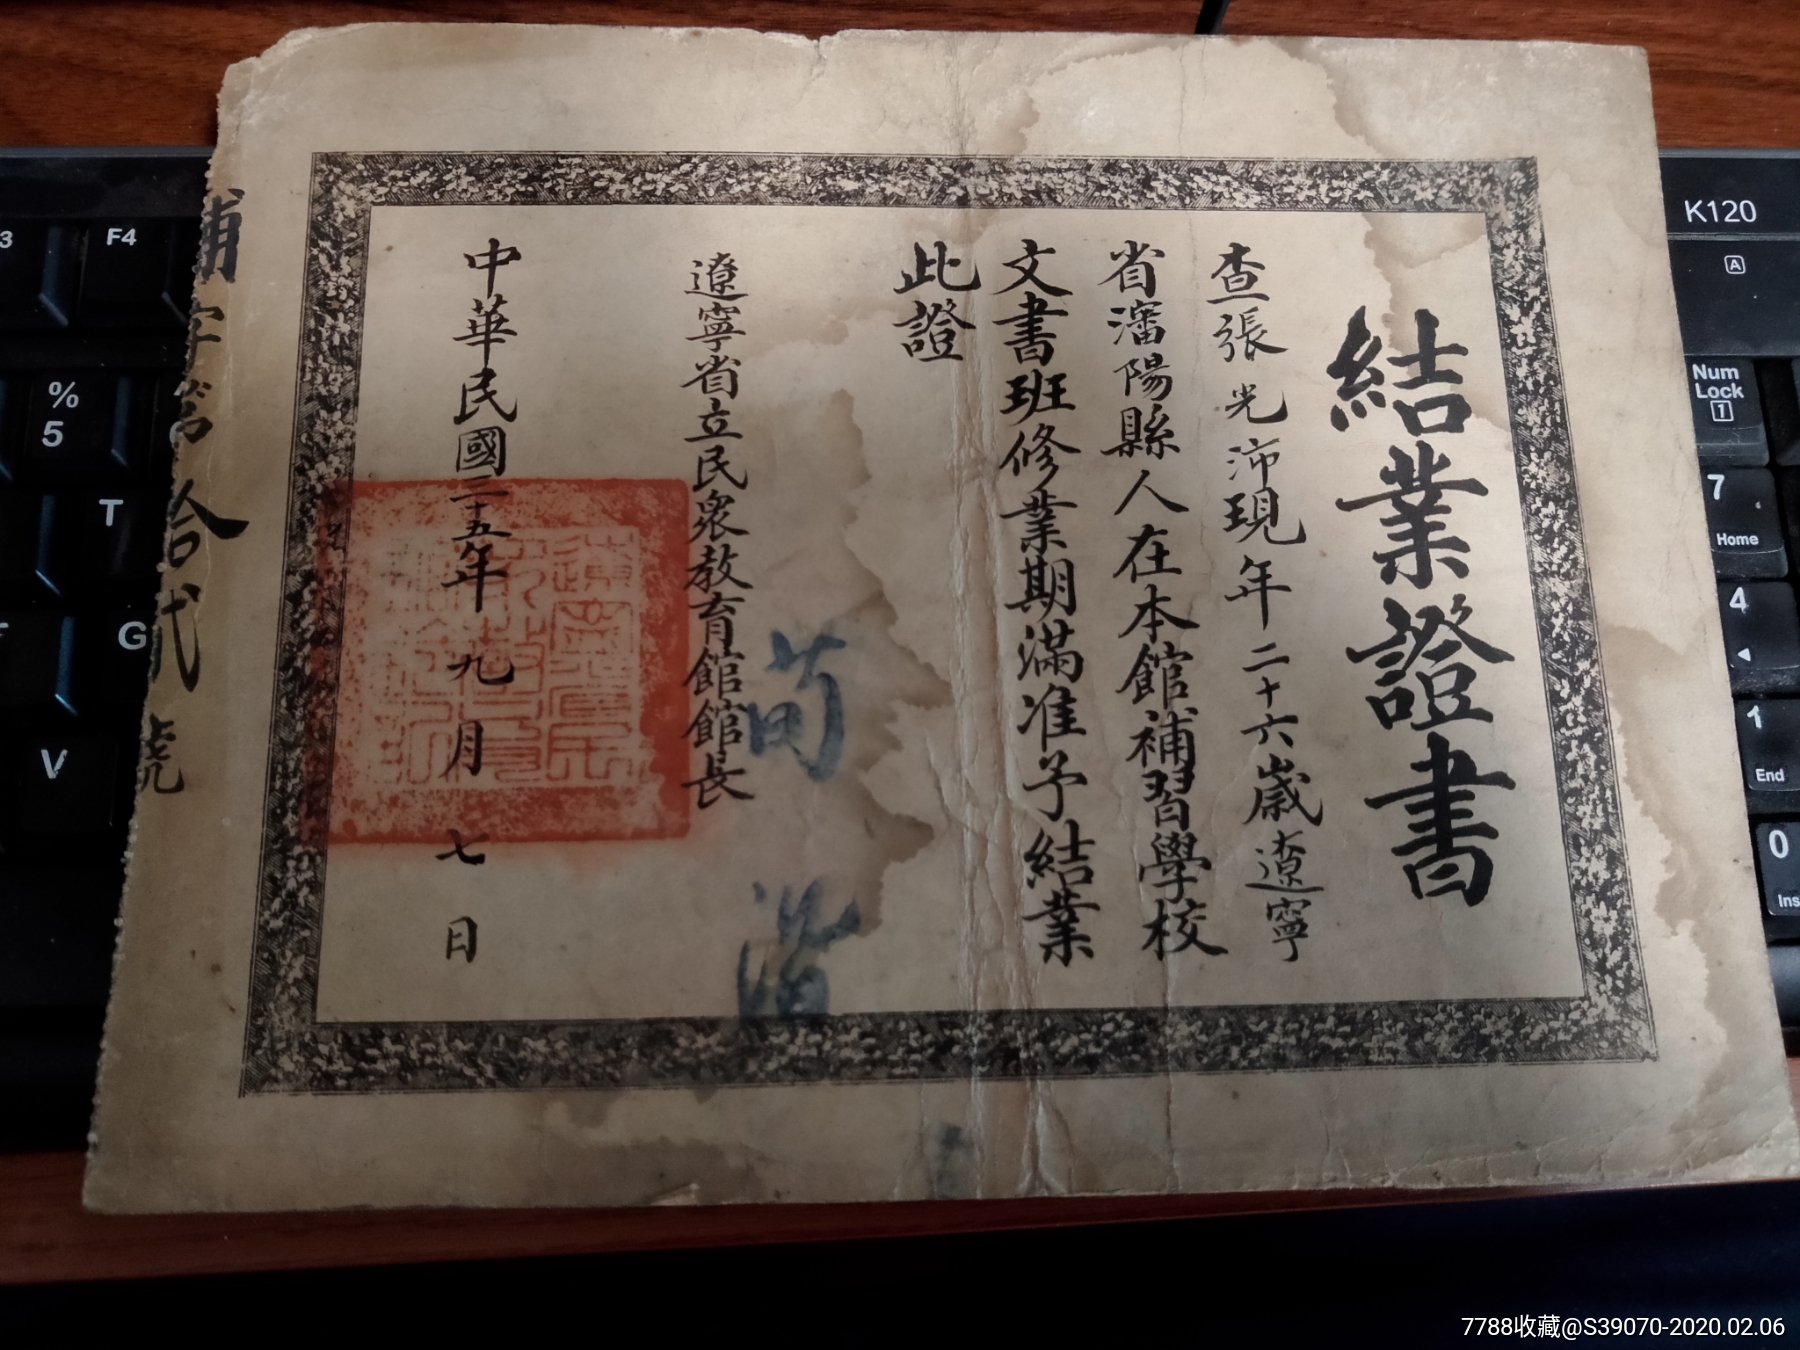 結業證書
查張光沛現年二十六歲遼寧
省瀋陽縣人在本館補習學校
文書班修業期滿准予結業
此證
遼寧省立民眾教育館館長
荀
中華民國三十五年九月七日
補字第拾弍號
F4
%
5
T
G
V
K120
A
Num
Lock
1
7
Home
4
1
End
0
Ins
7788收藏@S39070-2020.02.06